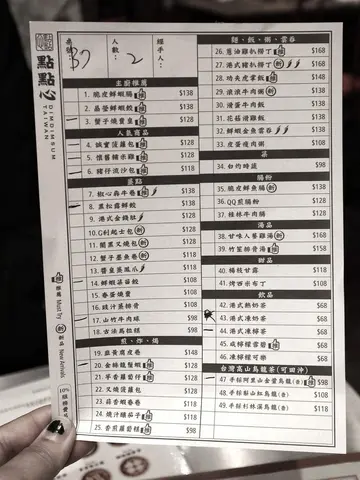 點點心
DIMDIMSUM
TAIWAN
桌號: 37
人數: 2
經手人:
主廚推薦
1. 脆皮鮮蝦腸 $138
2. 晶瑩鮮蝦餃 $138
3. 蟹子燒賣皇 $138
人氣商品
4. 誠實菠蘿包 $128
5. 懷舊糯米雞 $128
6. 豬仔流沙包 $118
蒸點
7. 椒心鳳牛卷 $118
8. 黑松露餃 $138
9. 港式金錢肚 $128
10. 起士包 $128
11. 閣黑叉燒包 $128
12. 蟹子墨魚卷 $118
13. 醬皇蒸鳳爪 $118
14. 鮮蝦菜苗餃 $108
15. 春蛋燒賣 $108
16. 豉汁蒸排骨 $108
17. 山竹牛肉球 $98
18. 古法馬拉糕 $98
煎.炸.焗
19. 韮黃腐皮卷 $148
20. 金絲龍鬚蝦 $128
21. 芋香蘿蔔仔 $128
22. 叉燒菠蘿包
23. 蒜香蝦春卷
24. 燒汁釀茄子 $108
25. 香煎蘿蔔糕 $98
麵、飯、粥、雲吞
26. 蔥油雞扒撈丁 $168
27. 港式豬扒撈丁 $168
28. 功夫皮蛋飯 $148
29. 滾滾牛肉粥 $148
30. 滑蛋牛肉飯 $148
31. 花菇滑雞飯 $148
32. 鮮蝦金魚雲吞 $148
33. 皮蛋瘦肉粥 $108
菜
34. 台灼時蔬 $98
腸粉
35. 脆皮鮮魚腸 $138
36. QQ煎腸粉 $108
37. 桂林牛肉腸 $128
湯品
38. 甘味人蔘雞湯 $168
39. 竹笙排骨湯 $158
甜品
40. 楊枝甘露 $118
41. 烤西米布丁 $108
飲品
42. 港式熱奶茶 $68
43. 港式凍奶茶 $68
44. 港式凍檸茶 $68
45. 咸檸檬雪碧 $68
46. 凍檸檬可樂 $68
台灣高山烏龍茶(可回沖)
47. 手採阿里山金萱烏龍(壺) $98
48. 手採梨山紅烏龍(壺) $108
49. 手採杉林溪烏龍(壺) $118
推薦 Must try
新品 New Arrivals
10%